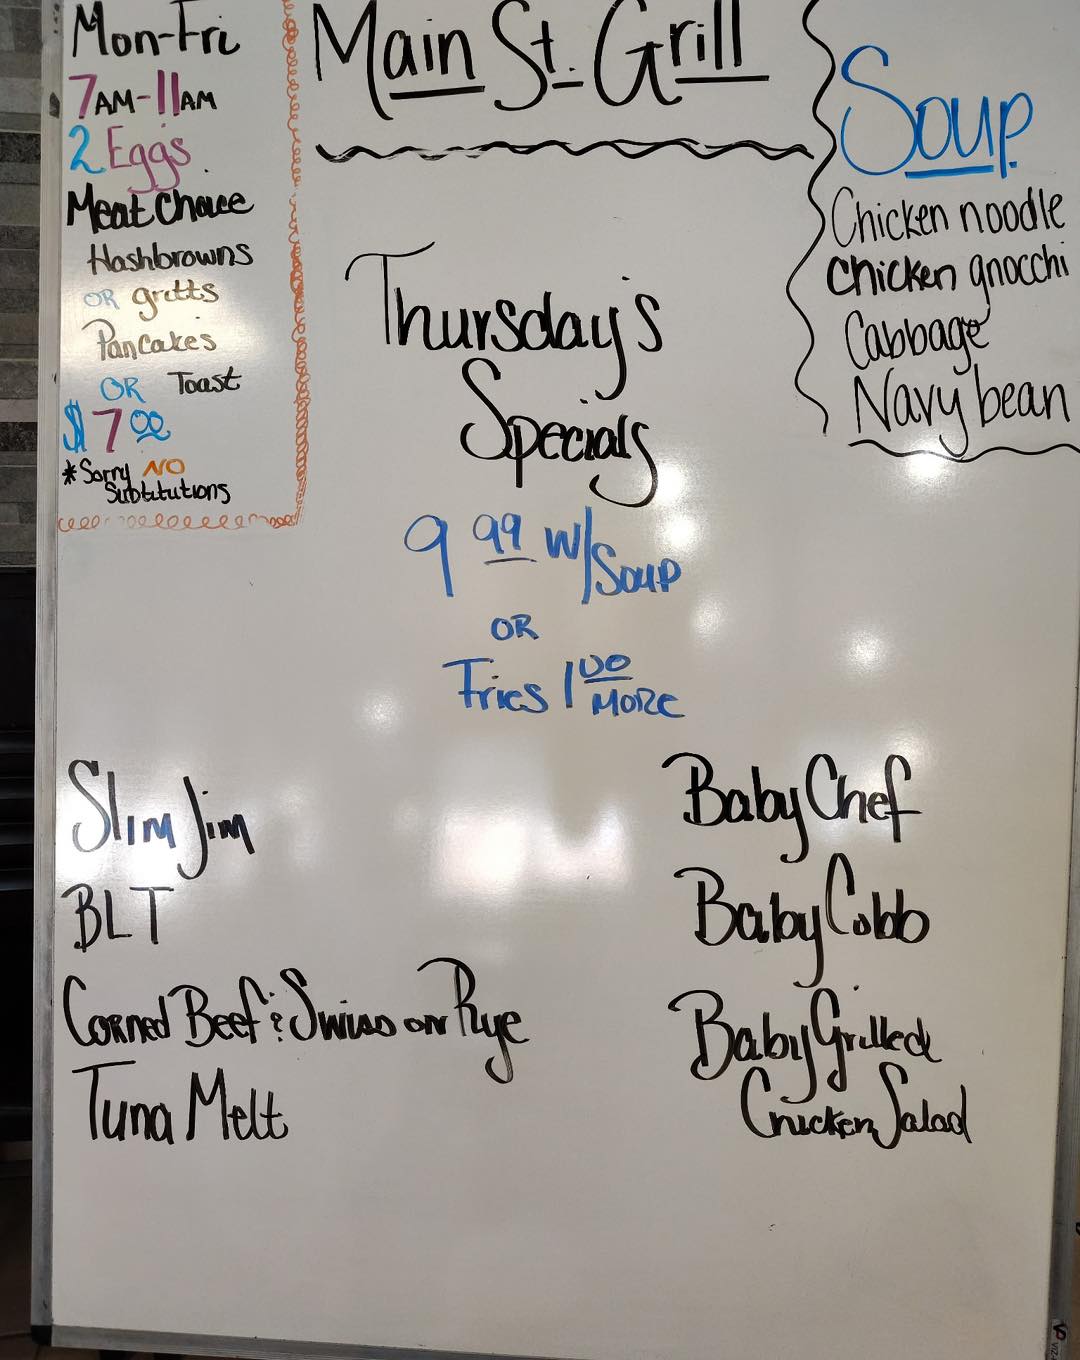 Mon-Fri
7AM-11AM
2 Eggs
Meat Choice
Hashbrowns
OR gritts
Pancakes
OR Toast
$7.00
*Sorry NO
Subtitutions
Main St. Grill
Thursday's
Specials
9.99 W/Soup
OR
Fries 1.00
MORE
Soup
Chicken noodle
Chicken gnocchi
Cabbage
Navy bean
Slim Jim
BLT
Corned Beef & Swiss on Rye
Tuna Melt
Baby Chef
Baby Cobb
Baby Grilled
Chicken Salad